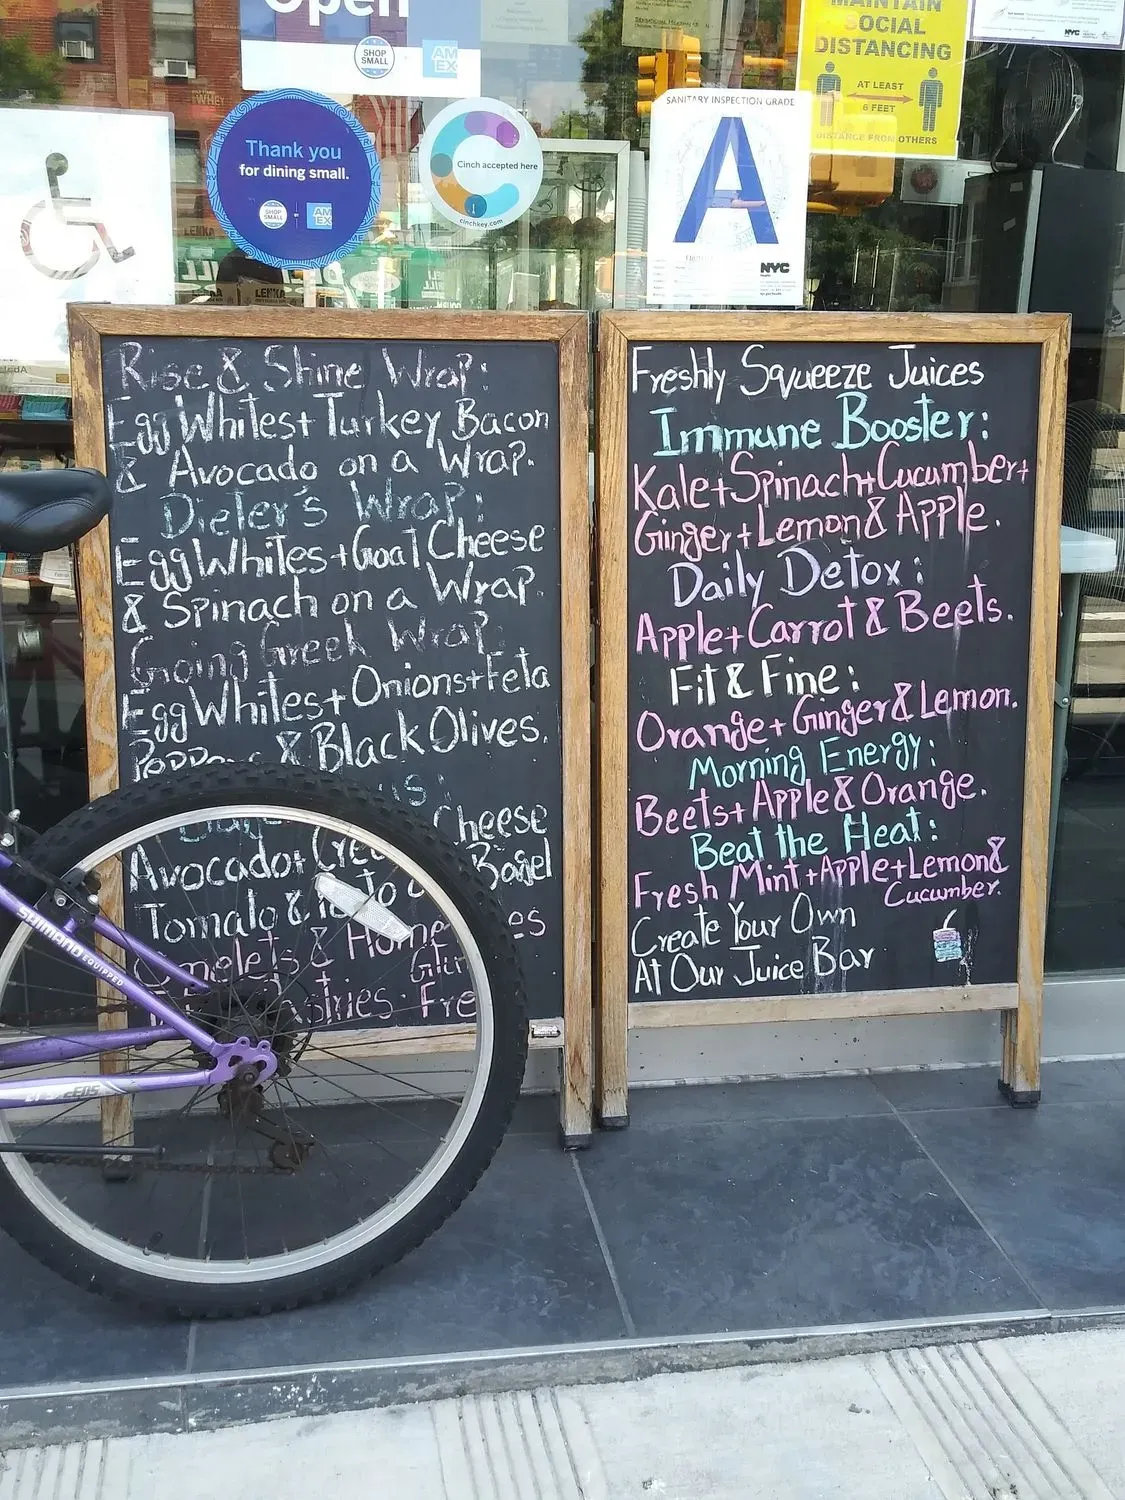 Open
SHOP
SMALL
AM
EX
Thank you
for dining small.
SHOP
SMALL
AM
EX
Cinch accepted here
cinchkey.com
SANITARY INSPECTION GRADE
A
NYC
MAINTAIN
SOCIAL
DISTANCING
AT LEAST
6 FEET
DISTANCE FROM OTHERS
NYC
LENKA
Rise & Shine Wrap:
Egg Whites+Turkey Bacon
& Avocado on a Wrap.
Dieter's Wrap:
Egg Whites+Goat Cheese
& Spinach on a Wrap.
Going Greek Wrap:
Egg Whites+Onions+Feta
Peppers & Black Olives.
Cheese
Avocado+
Bagel
Tomato &
& Home
Fre
Freshly Squeeze Juices
Immune Booster:
Kale+Spinach+Cucumber+
Ginger+Lemon & Apple.
Daily Detox:
Apple+Carrot & Beets.
Fit & Fine:
Orange+Ginger & Lemon.
Morning Energy:
Beets+Apple & Orange.
Beat the Heat:
Fresh Mint+Apple+Lemon &
Cucumber.
Create Your Own
At Our Juice Bar
SHIMANO EQUIPPED